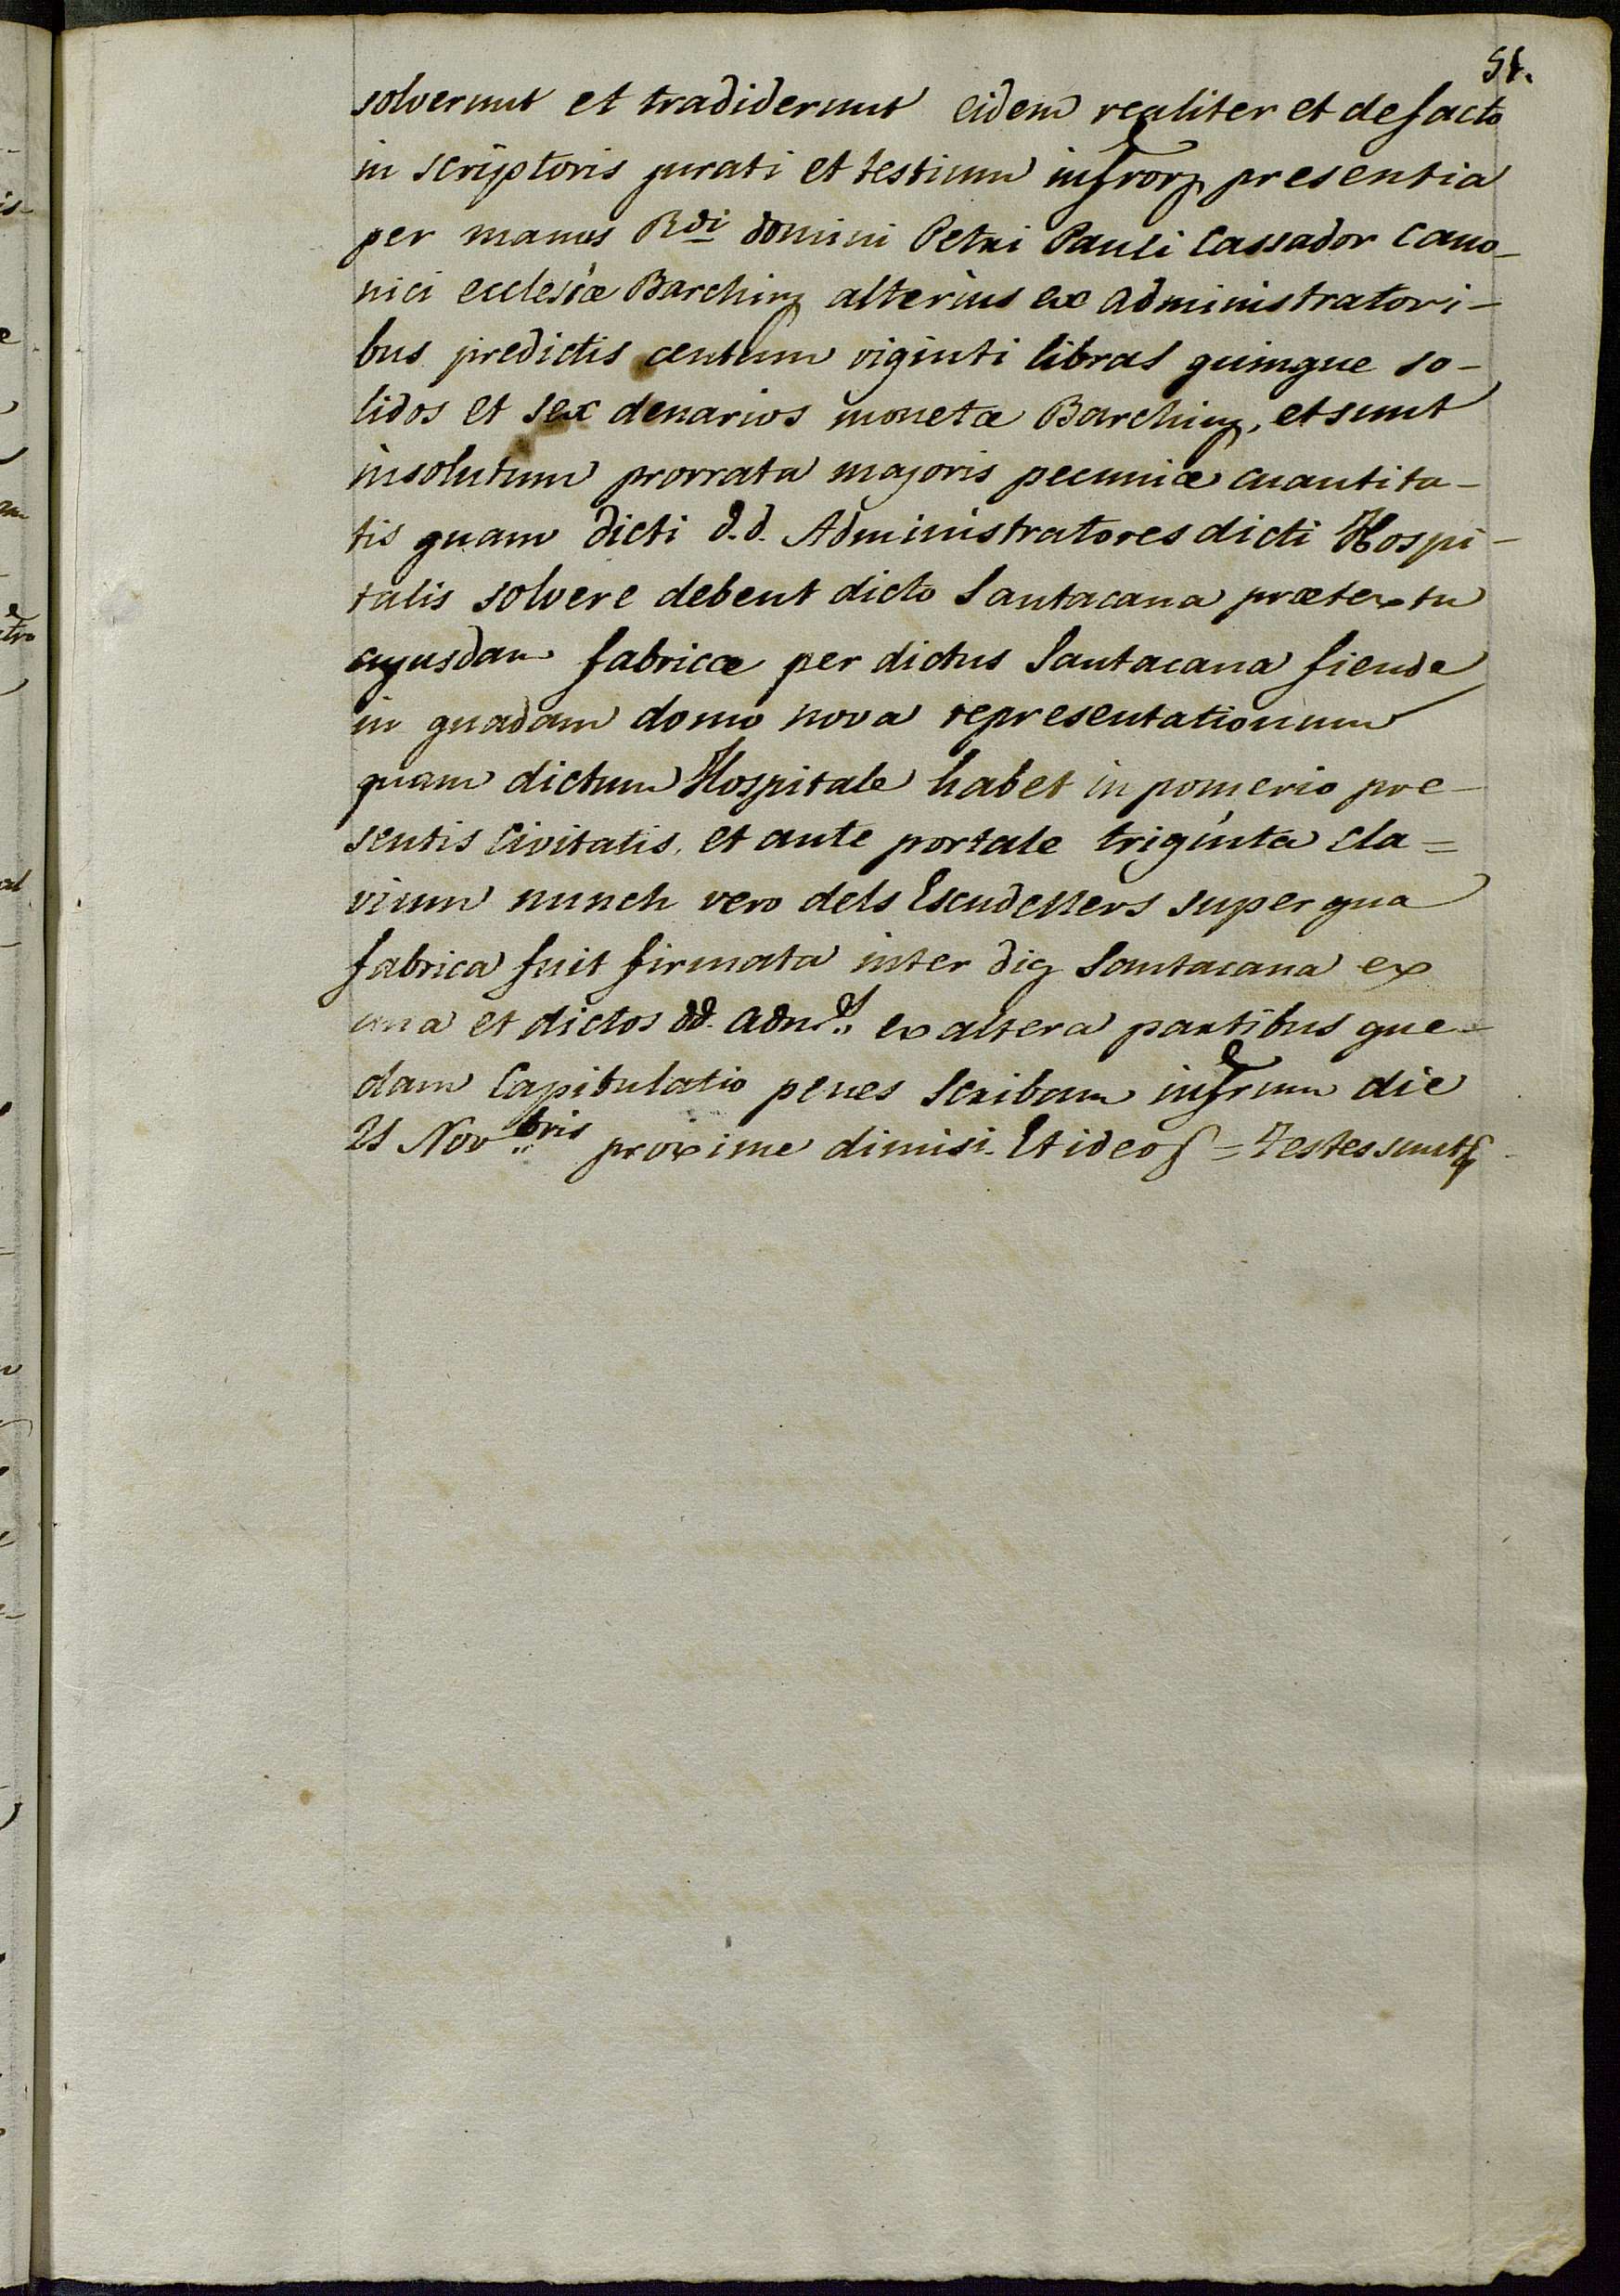 51.
solverunt et tradiderunt eidem realiter et de facto
in scriptoris jurati et testium infrorz presentia
per manus Rdi domini Petri Pauli Cassador Cano-
nici ecclesiæ Barchinz alterius ex administratori-
bus predictis centum viginti libras quinque so-
lidos et sex denarios monetæ Barchinz, et sunt
insolutum prorrata majoris pecuniæ cuantita-
tis quam dicti d.d. Administratores dicti Hospi-
talis solvere debent dicto Santacana prætextu
cujusdam fabricæ per dictus Santacana fienda
in quadam domo nova representationum
quam dictum Hospitale habet in pomerio pre-
sentis Civitatis, et ante portale triginta cla=
vium nunch vero dels Escudellers super qua
fabrica fuit firmata inter dig Santacana ex
una et dictos dd. adm.s ex altera partibus que-
dam Capitulatio penes scribam infrum die
21 Novbris proxime dimisi. Et ideo = Testes sunt